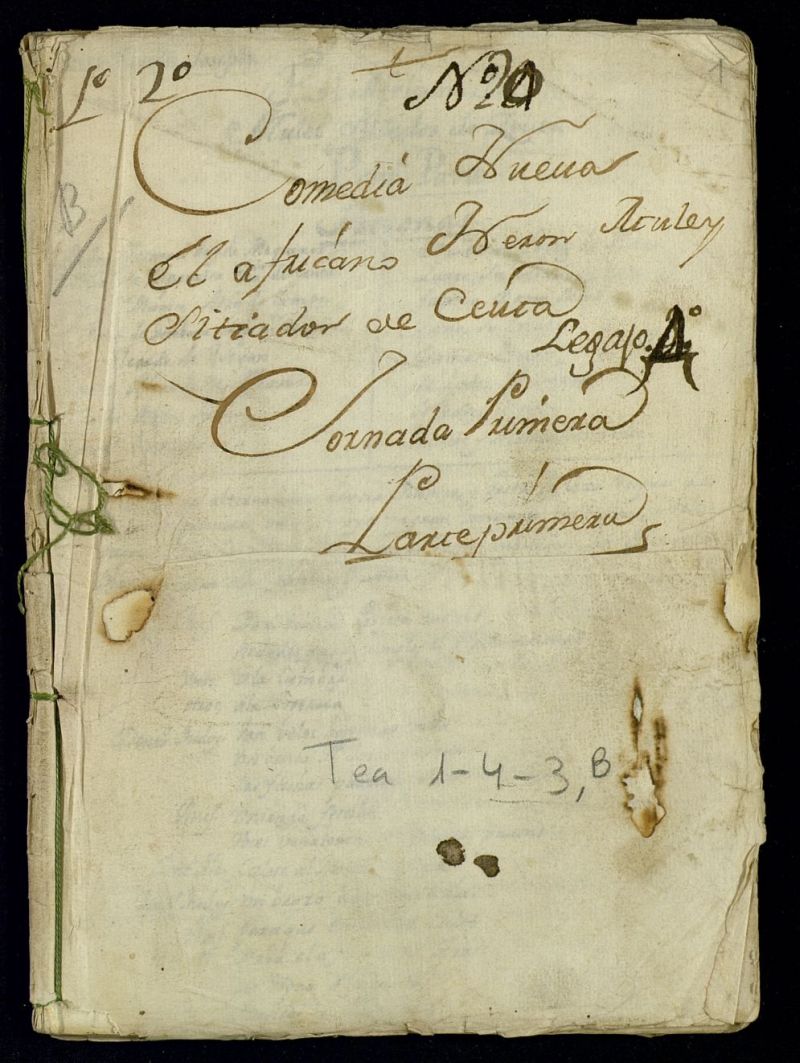 1º 2º Nº 1
Comedia Nueva
El africano Neron Muley
Sitiador de Ceuta
Legajo. 4º
Jornada Primera
Parte primera
B
Tea 1-4-3, B